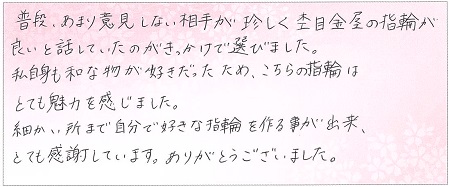 普段、あまり意見しない相手が珍しく杢目金屋の指輪が
良いと話していたのがきっかけで選びました。
私自身も和な物が好きだったため、こちらの指輪は
とても魅力を感じました。
細かい所まで自分で好きな指輪を作る事が出来、
とても感謝しています。ありがとうございました。